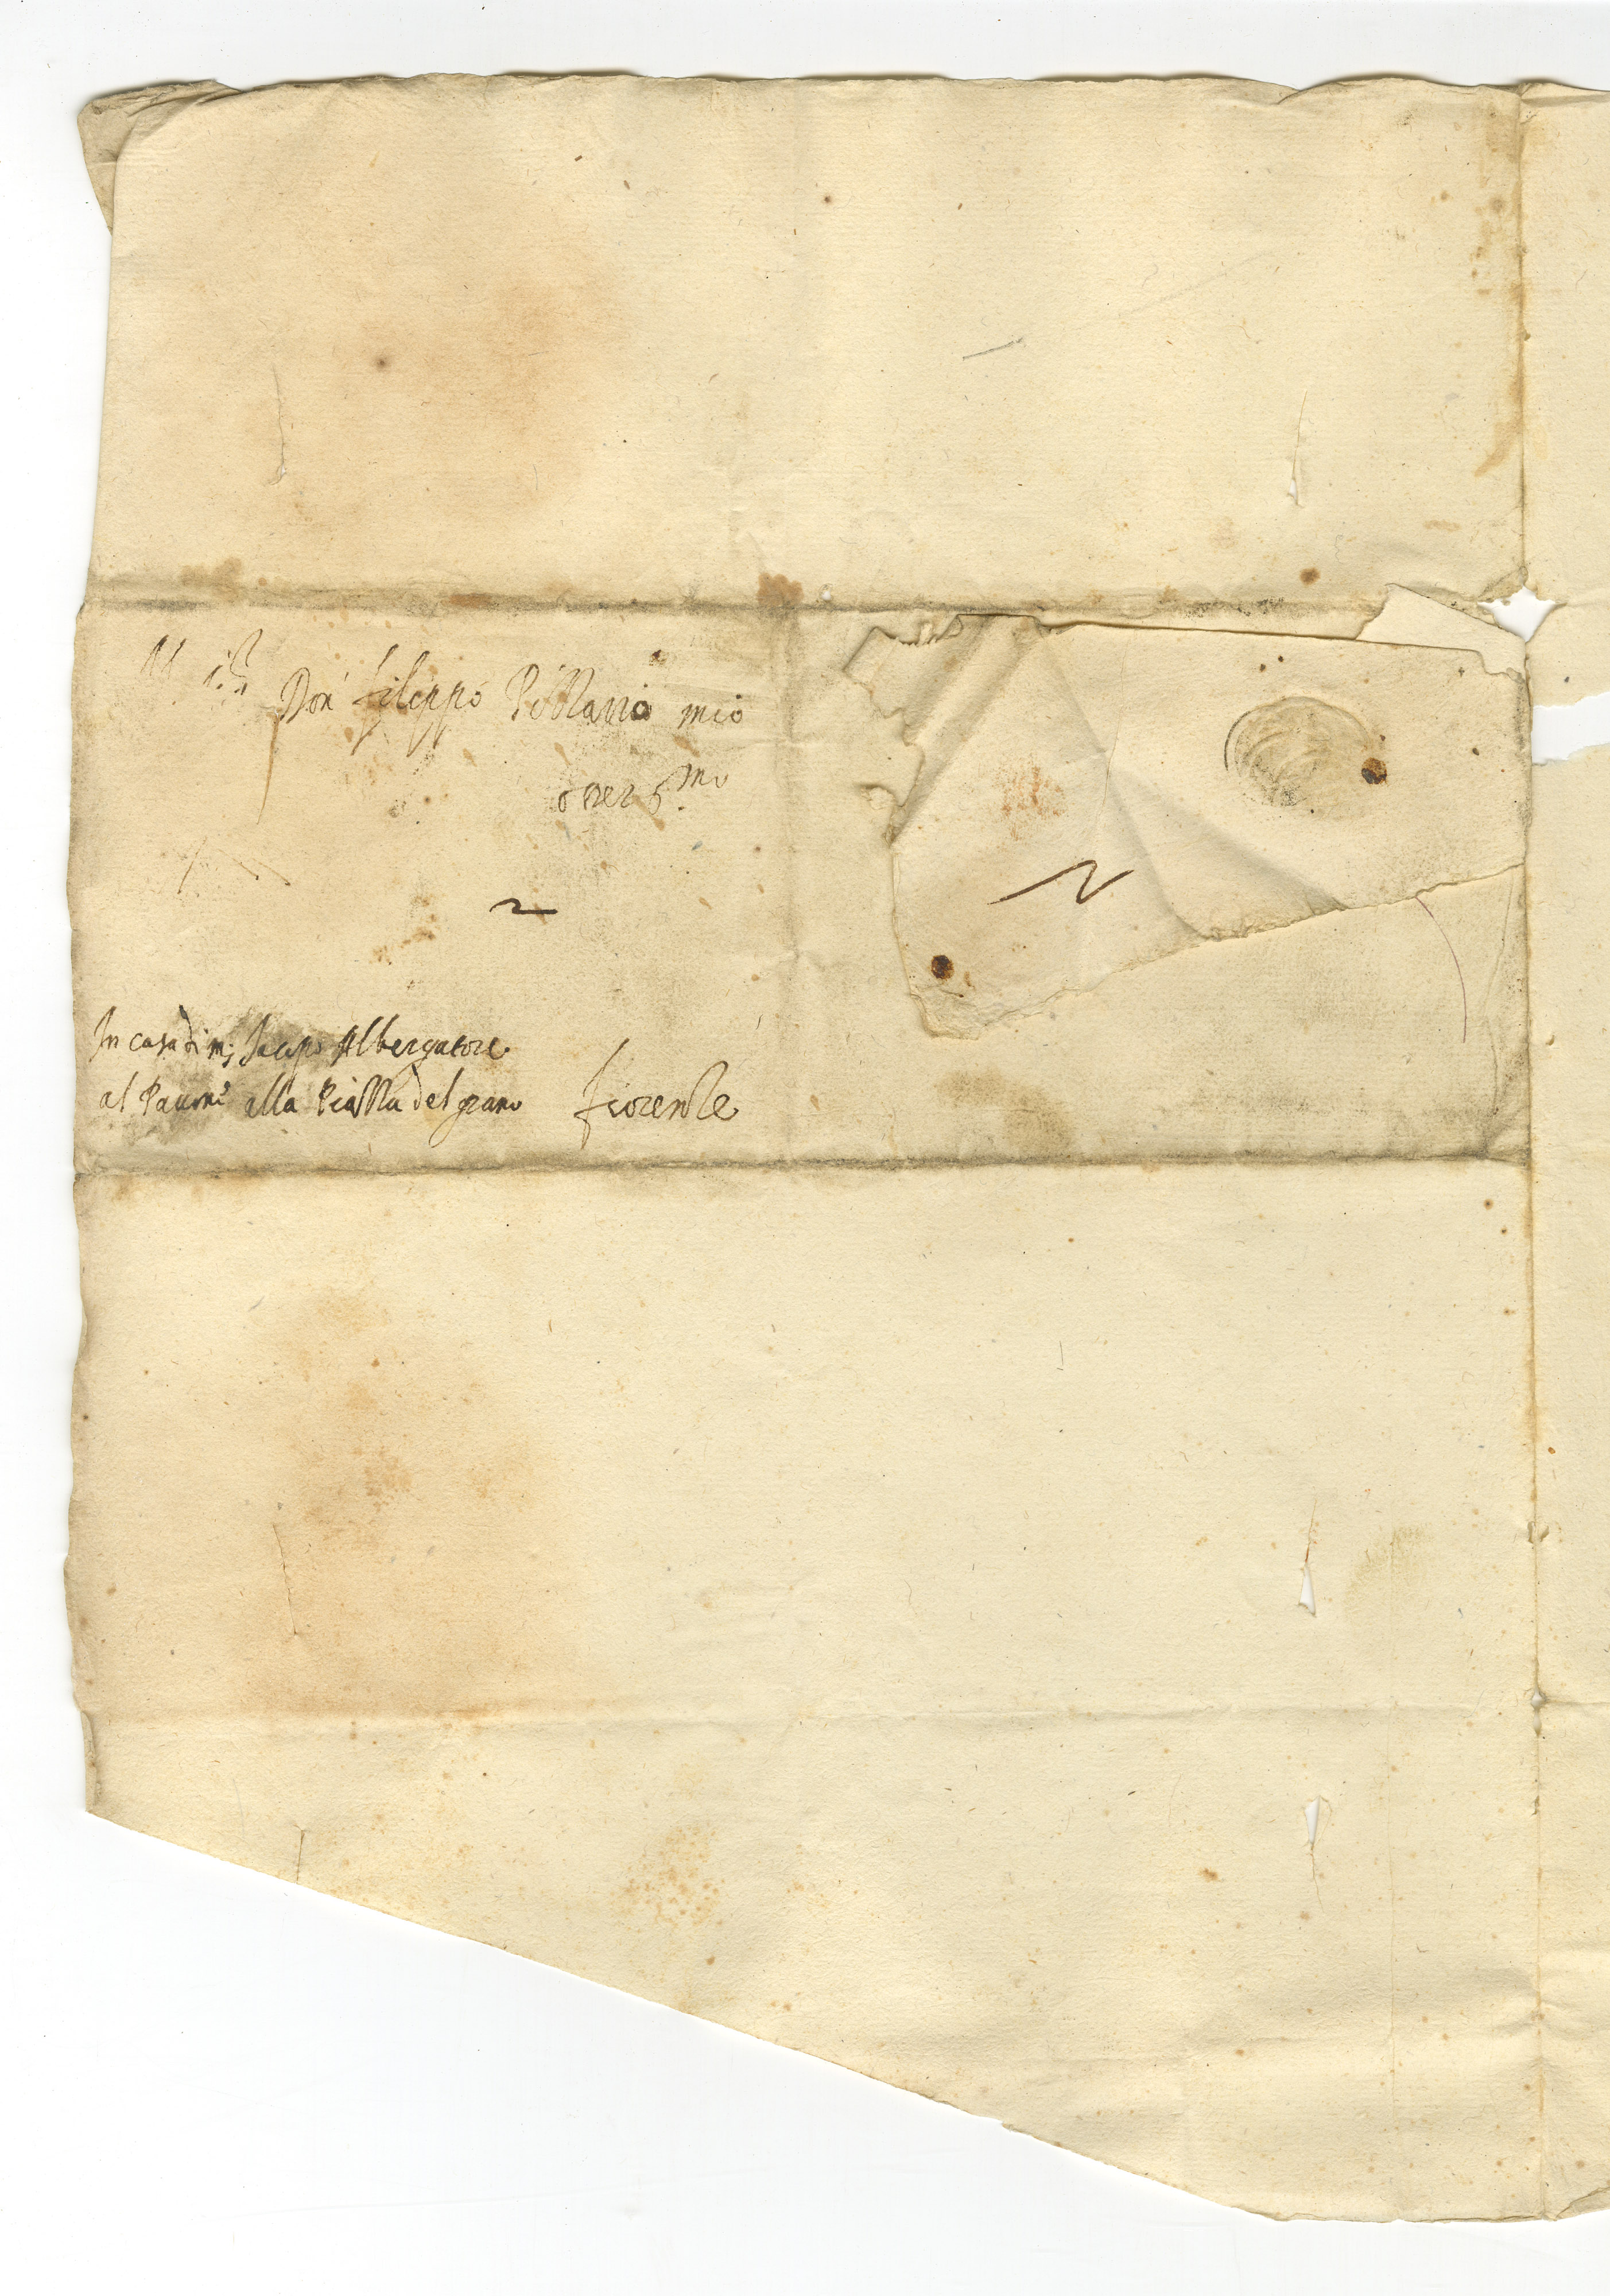 Don Filippo Pizzarri mio
osser.mo
In casa di m; Jacopo Albergatore
al Pavone alla Piazza del grano Fiorenze